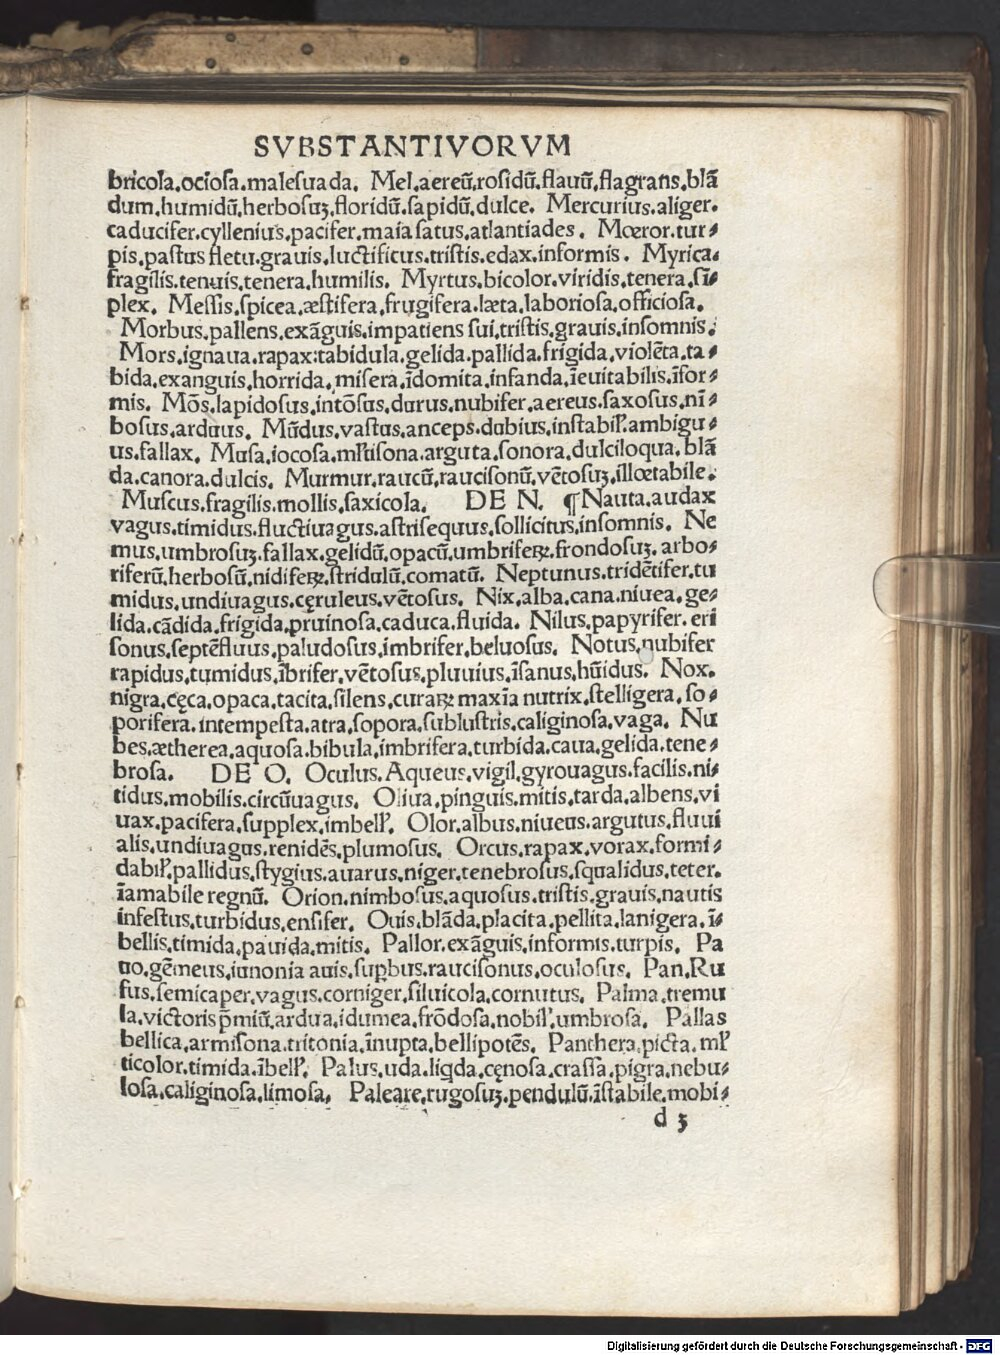 SVBSTANTIVORVM
bricola.ociosa.malesuada. Mel.aereū.rosidū.flauū.flagrans.blā
dum.humidū.herbosuꝫ.floridū.sapidū.dulce. Mercurius.aliger.
caducifer.cyllenius.pacifer.maia satus.atlantiades. Mœror.tur⸗
pis.pastus fletu.grauis.luctificus.tristis.edax.informis. Myrica.
fragilis.tenuis.tenera.humilis. Myrtus.bicolor.viridis.tenera.sī⸗
plex. Messis.spicea.æstifera.frugifera.læta.laboriosa.officiosa.
Morbus.pallens.exāguis.impatiens sui.tristis.grauis.insomnis.
Mors.ignaua.rapax:tabidula.gelida.pallida.frigida.violēta.ta⸗
bida.exanguis.horrida.misera.īdomita.infanda.īeuitabilis.īfor⸗
mis. Mōs.lapidosus.intōsus.durus.nubifer.aereus.saxosus.nī⸗
bosus.arduus. Mūdus.vastus.anceps.dubius.instabiꝉ.ambigu⸗
us.fallax. Musa.iocosa.mꝉtisona.arguta.sonora.dulciloqua.blā
da.canora.dulcis. Murmur.raucū.raucisonū.vētosuꝫ.illœtabile.
Muscus.fragilis.mollis.saxicola. DE N. ¶Nauta.audax
vagus.timidus.fluctiuagus.astrisequus.sollicitus.insomnis. Ne
mus.umbrosuꝫ.fallax.gelidū.opacū.umbriferꝫ.frondosuꝫ.arbo⸗
riferū.herbosū.nidiferꝫ.stridulū.comatū. Neptunus.tridētifer.tu
midus.undiuagus.cęruleus.vētosus. Nix.alba.cana.niuea.ge⸗
lida.cādida.frigida.pruinosa.caduca.fluida. Nilus.papyrifer.eri
sonus.septēfluus.paludosus.imbrifer.beluosus. Notus.nubifer
rapidus.tumidus.ībrifer.vētosus.pluuius.īsanus.hūidus. Nox.
nigra.cęca.opaca.tacita.silens.curaꝝ maxīa nutrix.stelligera.so⸗
porifera.intempesta.atra.sopora.sublustris.caliginosa.vaga. Nu
bes.ætherea.aquosa.bibula.imbrifera.turbida.caua.gelida.tene⸗
brosa. DE O. Oculus.Aqueus.vigil.gyrouagus.facilis.ni⸗
tidus.mobilis.circūuagus. Oliua.pinguis.mitis.tarda.albens.vi
uax.pacifera.supplex.imbelꝉ. Olor.albus.niueus.argutus.fluui
alis.undiuagus.renidēs.plumosus. Orcus.rapax.vorax.formi⸗
dabiꝉ.pallidus.stygius.auarus.niger.tenebrosus.squalidus.teter.
īamabile regnū. Orion.nimbosus.aquosus.tristis.grauis.nautis
infestus.turbidus.ensifer. Ouis.blāda.placita.pellita.lanigera.ī⸗
bellis.timida.pauida.mitis. Pallor.exāguis.informis.turpis. Pa
uo.gēmeus.iunonia auis.supꝑbus.raucisonus.oculosus. Pan.Ru
fus.semicaper.vagus.corniger.siluicola.cornutus. Palma.tremu
la.victoris p̄miū.ardua.idumea.frōdosa.nobiꝉ.umbrosa. Pallas
bellica.armisona.tritonia.īnupta.bellipotēs. Panthera.picta.mꝉ
ticolor.timida.ībelꝉ. Palus.uda.liqda.cęnosa.crassa.pigra.nebu⸗
losa.caliginosa.limosa. Paleare.rugosuꝫ.pendulū.īstabile.mobi⸗
d 3
Digitalisierung gefördert durch die Deutsche Forschungsgemeinschaft - DFG